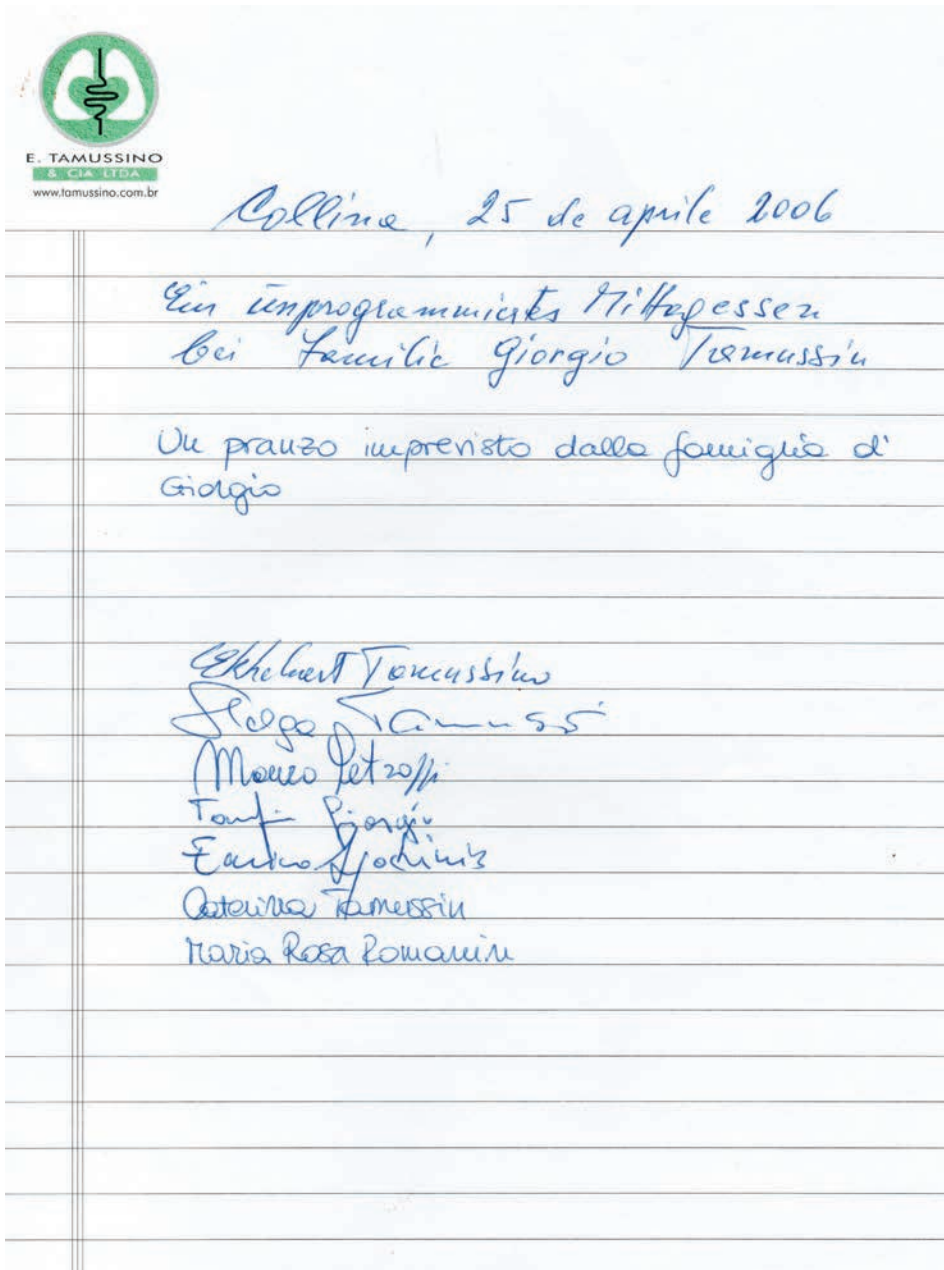 E. TAMUSSINO
& CIA LTDA
www.tamussino.com.br
Collina, 25 de aprile 2006
Ein unprogrammiertes Mittagessen
bei Familie Giorgio Tamussin
Un pranzo imprevisto dalla famiglia di
Giorgio
Tamussino
Helga Tamuss
Marco
Giorgio
Enrico
Caterina Tamussin
Maria Rosa Romanin